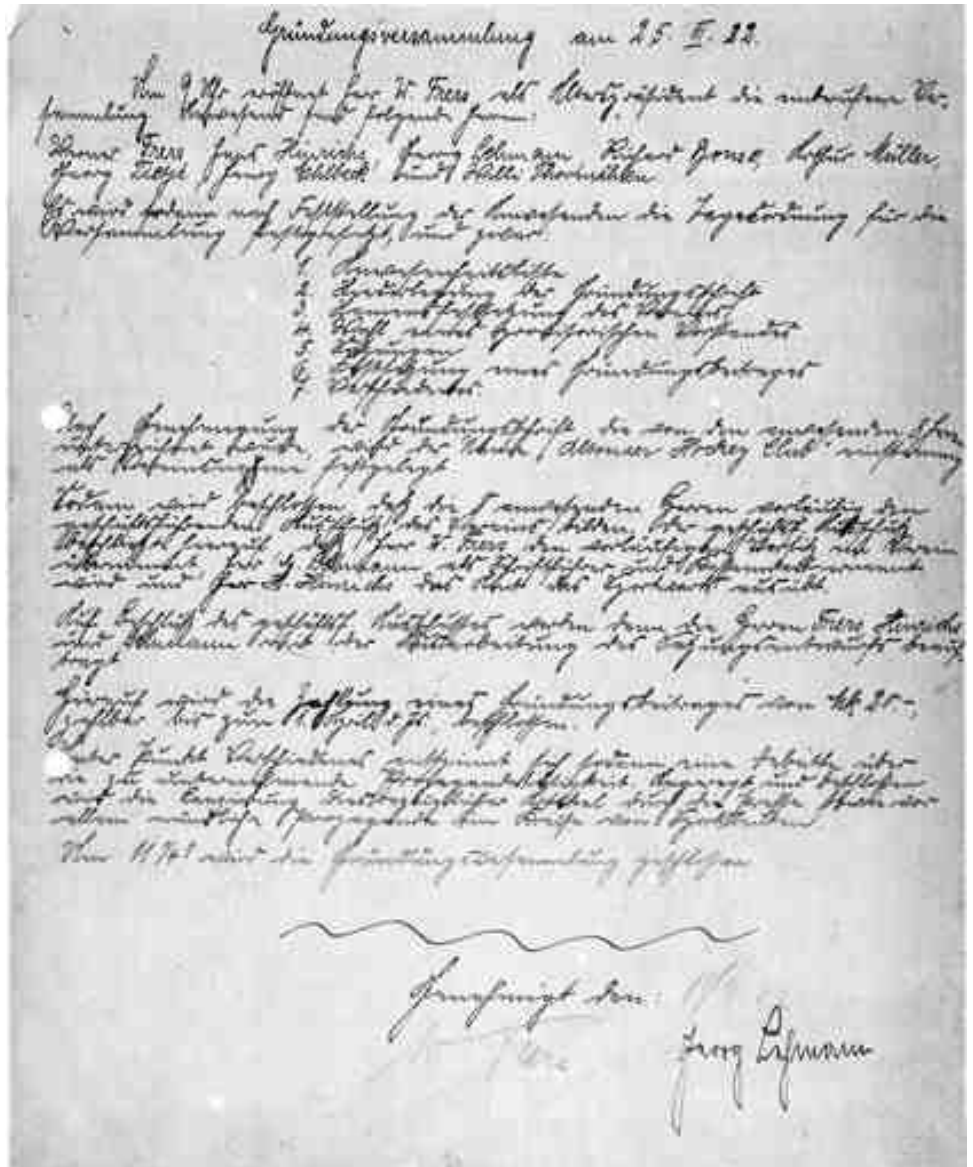 Gründungsversammlung am 25. III. 22.
Um 9 Uhr eröffnet Herr W. Frers als Alterspräsident die einberufene Ver-
sammlung. Anwesend sind folgende Herren:
Werner Frers, Hinrichs, Georg Lehmann, Richard, Arthur Müller,
Georg, Georg und Willi
Es wird sodann nach Feststellung der Anwesenden die Tagesordnung für die
Versammlung festgesetzt, und zwar:
1. Anwesenheitsliste
2. der Gründungsschrift
3. Namensfestlegung des Vereins
4. Wahl eines provisorischen Vorstandes
5. Satzungen
6. Festsetzung eines Gründungsbeitrages
7. Verschiedenes.
Nach Genehmigung der Gründungsschrift, die von den anwesenden Herren
unterzeichnet wurde, wird der Name "Altonaer Hockey Club" einstimmig
als Vereinsname festgelegt.
Sodann wird beschlossen, daß die 8 anwesenden Herren vorläufig den
geschäftsführenden Ausschuß des Vereins bilden. Der geschäftsf. Ausschuß
beschließt hierauf, daß Herr W. Frers den vorläufigen Vorsitz im Verein
übernimmt, Herr G. Lehmann als Schriftführer und Kassenwart ernannt
wird und Herr Hinrichs das Amt des Sportwarts ausübt.
Auf Beschluß des geschäftsf. Ausschusses werden dann die Herren Frers, Hinrichs
und Lehmann mit der Ausarbeitung des Satzungsentwurfs beauf-
tragt.
Hierauf wird die Zahlung eines Gründungsbeitrages von Mk 20.-,
zahlbar bis zum 1. April d. Js. beschlossen.
Unter Punkt Verschiedenes entspinnt sich sodann eine Debatte über
die zu unternehmende Propagandatätigkeit. Angeregt und beschlossen
wird die Artikel durch die Presse sowie vor
allem mündliche Propaganda im Kreise von Sportleuten.
Um wird die Gründungsversammlung geschlossen.
Genehmigt den:
Georg Lehmann